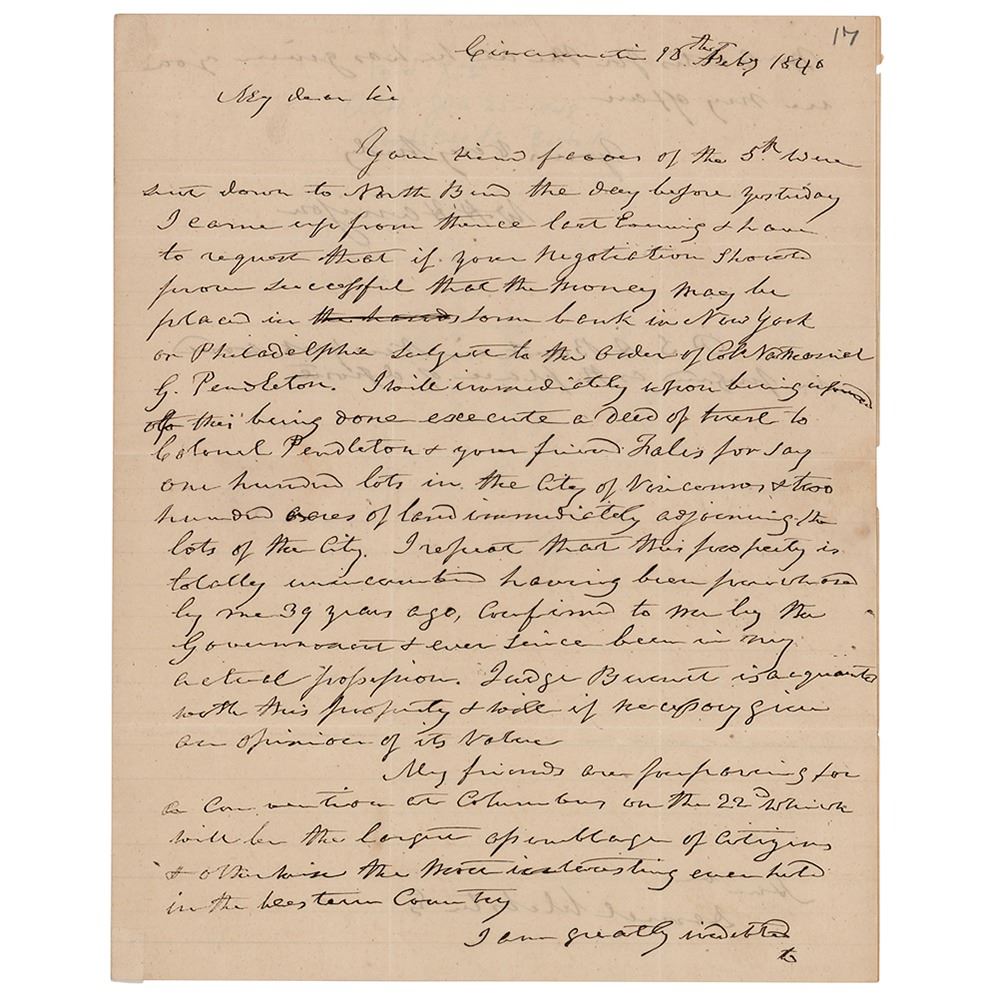 17
Cincinnati 18th Feby 1840
My dear Sir
Your kind favor of the 5th were
sent down to North Bend the day before yesterday
I came up from thence last Evening & have
to request that if your Negotiation should
prove successful that the money may be
placed in the hands some bank in New York
or Philadelphia subject to the order of Col. Nathaniel
G. Pendleton. I will immediately upon being informed
of this being done execute a deed of trust to
Colonel Pendleton & your friend Fales for say
one hundred lots in the City of Vincennes & two
hundred acres of land immediately adjoining the
lots of the City. I repeat that this property is
totally unincumbered having been purchased
by me 39 years ago, Confirmed to me by the
Government & ever since been in my
actual possession. Judge Burnet is acquainted
with this property & will if necessary give
an opinion of its Value
My friends are preparing for
a Convention at Columbus on the 22d which
will be the largest assemblage of Citizens
& otherwise the most interesting ever held
in the Western Country
I am greatly indebted
to